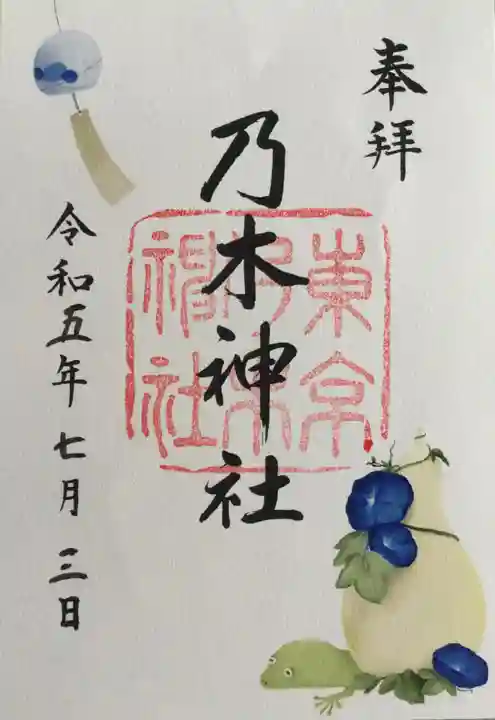 奉拝
乃木神社
東京
乃木
神社
令和五年七月三日